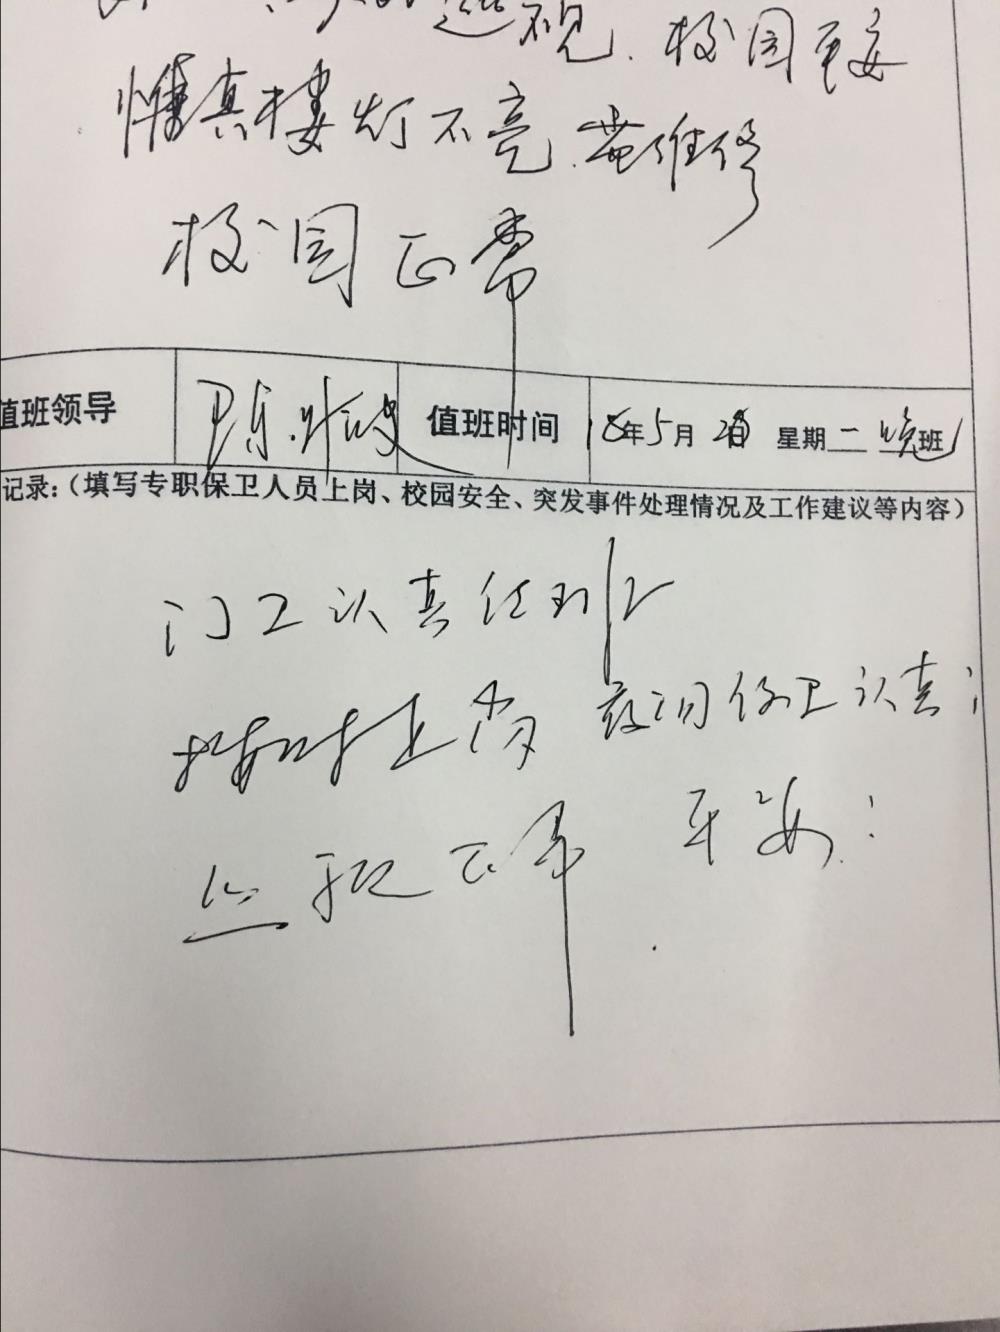 巡视.校园平安
惟真楼灯不亮.需维修
校园正常
值班领导 值班时间 18年5月2日 星期二 晚班
记录:（填写专职保卫人员上岗、校园安全、突发事件处理情况及工作建议等内容）
门卫认真值班
按时上岗 夜间保卫认真;
一切正常 平安.